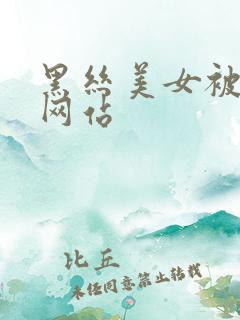 黑丝美女被
网站
比丘
未经同意禁止转载